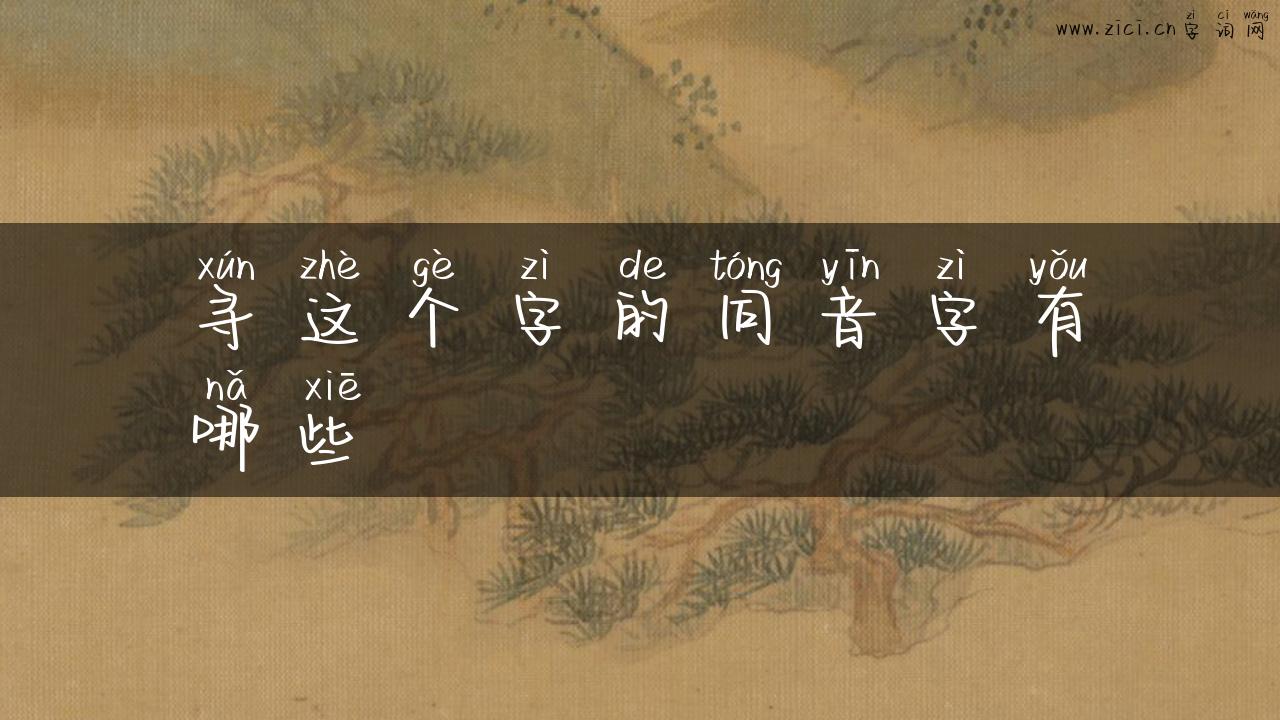 www.zici.cn
zì cí wǎng
字词网
xún zhè gè zì de tóng yīn zì yǒu
寻这个字的同音字有
nǎ xiē
哪些